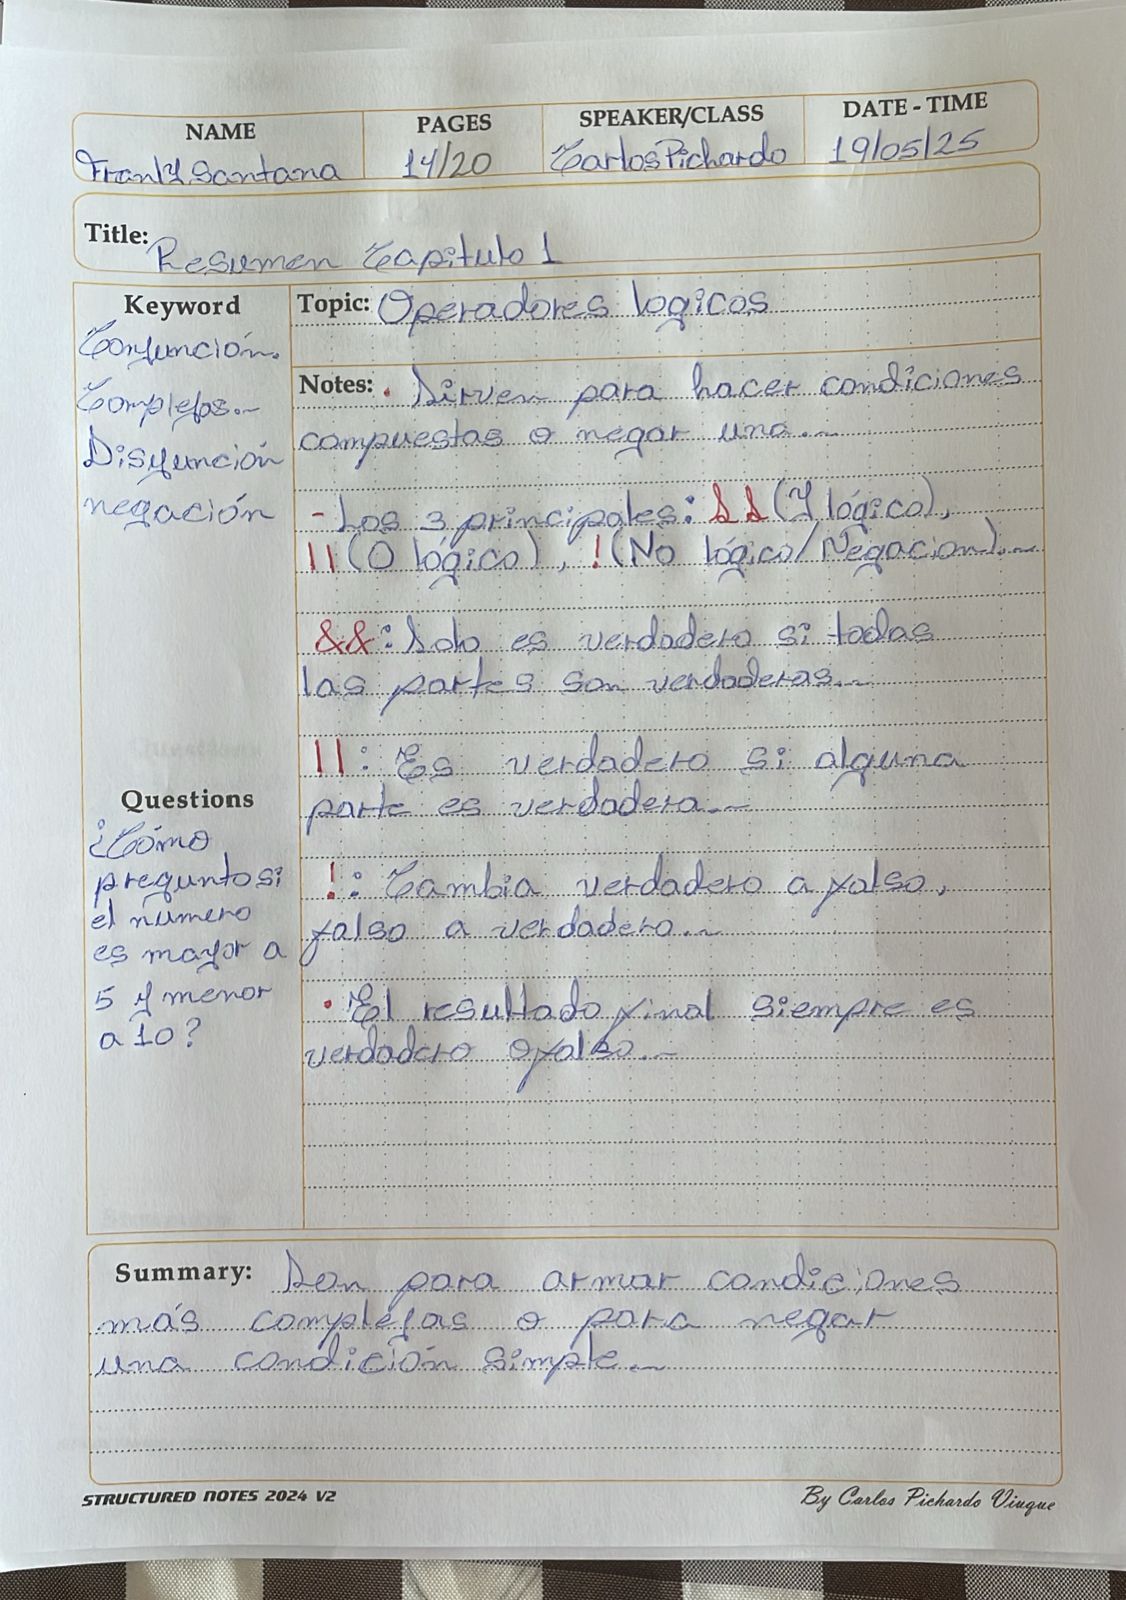 NAME PAGES SPEAKER/CLASS DATE - TIME
Frank Y Santana 14/20 Carlos Pichardo 19/05/25
Title: Resumen Capitulo 1
Keyword
Conjunción.
Complejos.~
Disyunción
negación
Topic: Operadores logicos
Notes: • Sirven para hacer condiciones
compuestas o negar una.~
- Los 3 principales: && (Y lógico),
|| (O lógico), ! (No lógico/Negacion).~
&&: Solo es verdadero si todas
las partes son verdaderas.~
||: Es verdadero si alguna
parte es verdadera.~
!: Cambia verdadero a falso,
falso a verdadero.~
• El resultado final siempre es
verdadero o falso.~
Questions
¿Cómo
pregunto si
el numero
es mayor a
5 y menor
a 10?
Summary: Son para armar condiciones
más complejas o para negar
una condición simple.~
STRUCTURED NOTES 2024 V2 By Carlos Pichardo Viuque